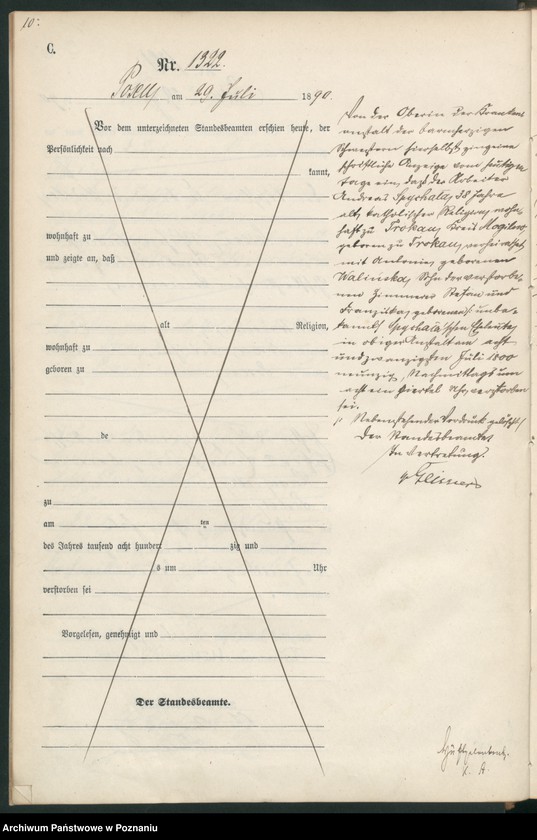 10.
C.
Nr. 1322.
Posen, am 29. Juli 1890.
Vor dem unterzeichneten Standesbeamten erschien heute, der
Persönlichkeit nach
kannt,
wohnhaft zu
und zeigte an, daß
alt Religion,
wohnhaft zu
geboren zu
de
zu
am ten
des Jahres tausend acht hundert zig und
s um Uhr
verstorben sei
Vorgelesen, genehmigt und
Der Standesbeamte.
Von der Oberin der Kranken
anstalt der barmherzigen
Schwestern hierselbst ging eine
schriftliche Anzeige vom heutigen
Tage ein, daß der Arbeiter
Andreas Spychala, 38 Jahre
alt, katholischer Religion, wohn
haft zu Trokau, Kreis Mogilno,
geboren zu Trokau, verheirathet
mit Antonie, geborenen
Walinska, Sohn der verstorbe
nen Zimmerer Stefan und
Franziska, geborenen unbe
kannt, Spychala'schen Eheleute,
in obiger Anstalt am acht
und zwanzigsten Juli 1800
neunzig, Nachmittags um
acht ein Viertel Uhr, verstorben
sei.
Nebenstehender Vordruck gelöscht
Der Standesbeamte
In Vertretung.
Archiwum Państwowe w Poznaniu